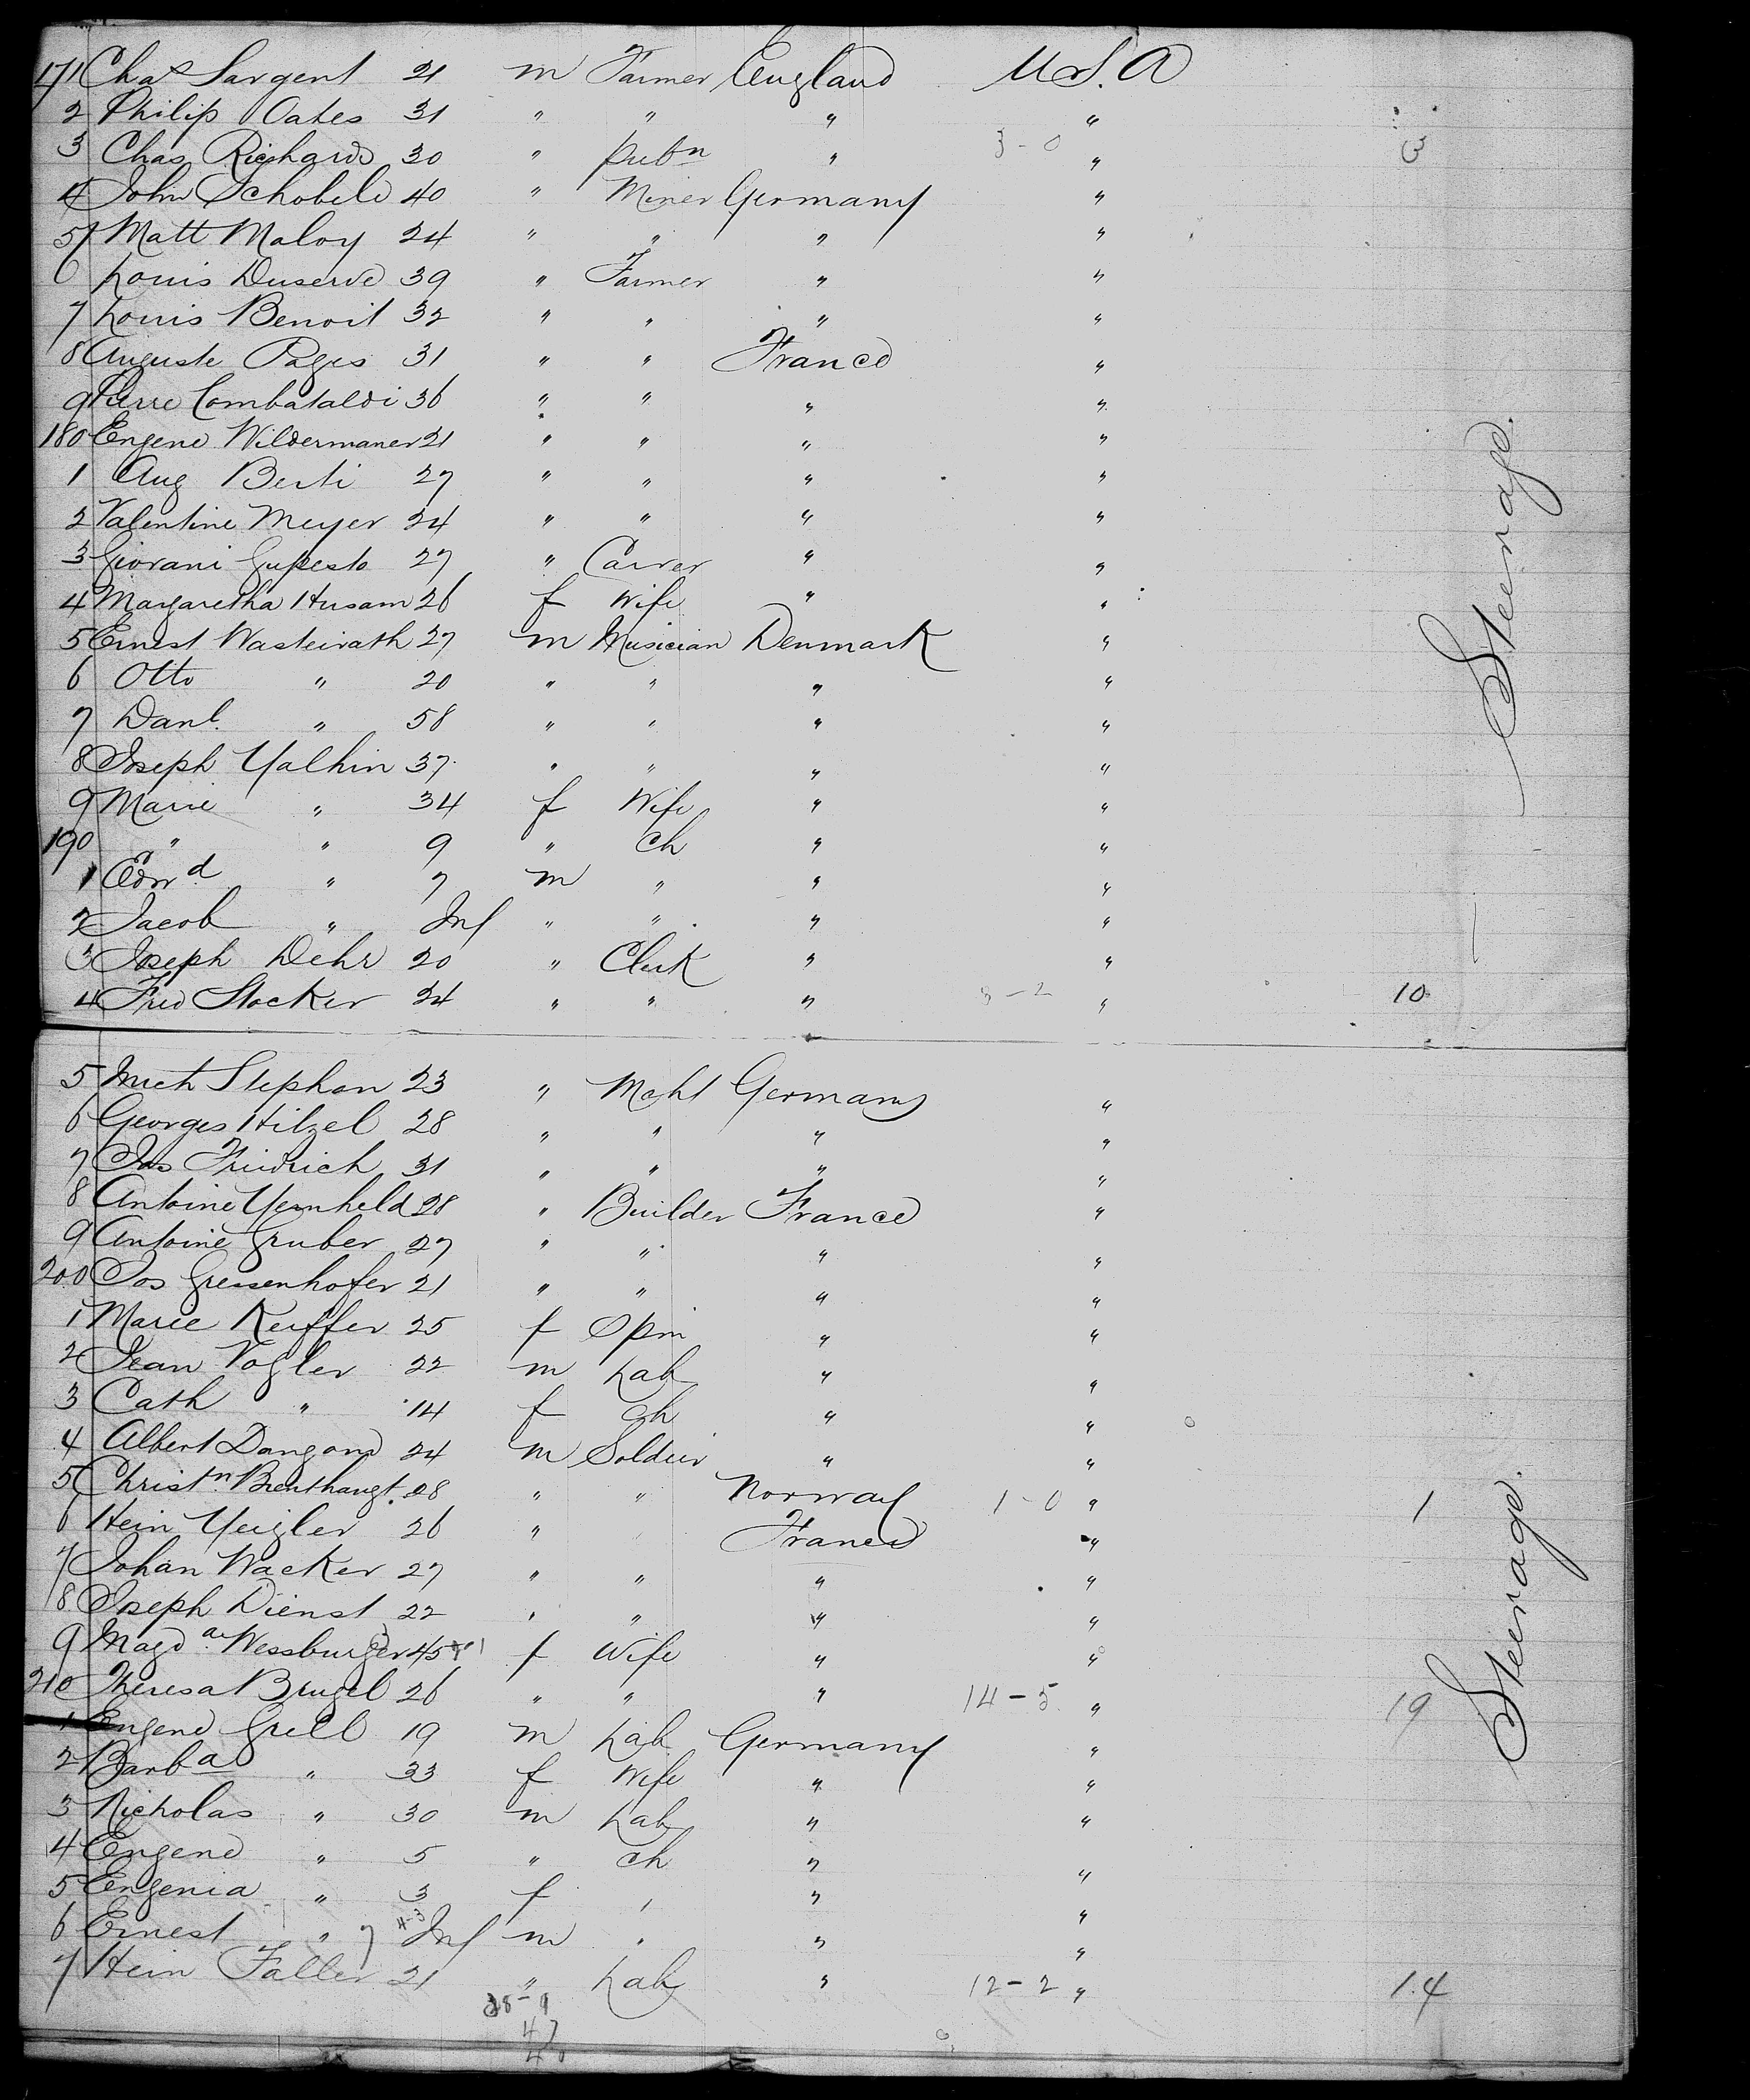 171 Chas Sargent 21 m Farmer England U.S.A
2 Philip Oates 31 " " " "
3 Chas Richards 30 " pubn " 3-0 " 3
4 John Schobele 40 " Miner Germany "
5 Matt Maloy 24 " " " "
6 Louis Duserve 39 " Farmer " "
7 Louis Benoit 32 " " " "
8 Auguste Pages 31 " " France "
9 Pierre Combataldi 36 " " " "
180 Eugene Wildermaner 21 " " " "
1 Aug Berti 27 " " " "
2 Valentine Meyer 24 " " " "
3 Giovani Gupesto 27 " Carver " "
4 Margaretha Husam 26 f Wife " "
5 Ernest Wasteirath 27 m Musician Denmark "
6 Otto " 20 " " " "
7 Danl. " 58 " " " "
8 Joseph Yalhin 37 " " " "
9 Marie " 34 f Wife " "
190 " " 9 " ch " "
1 Edwd " 7 m " " "
2 Jacob " Inf " " " "
3 Joseph Dehr 20 " Clerk " "
4 Fred Stocker 24 " " " " 10
Steerage
5 Mich Stephan 23 " Mcht Germany "
6 Georges Hitzel 28 " " " "
7 Jos Friedrich 31 " " " "
8 Antoine Yernheld 28 " Builder France "
9 Antoine Gruber 27 " " " "
200 Jos Greisenhofer 21 " " " "
1 Marie Keiffer 25 f Spin " "
2 Jean Vogler 22 m Lab " "
3 Cath " 14 f ch " "
4 Albert Dangond 24 m Soldier " "
5 Christn. Brenthaugt 28 " " Norway 1-0 " 1
6 Hein Yeigler 26 " " France "
7 Johan Wacker 27 " " " "
8 Joseph Dienst 22 " " " "
9 Magd Wessburger 45 f Wife " "
210 Theresa Brugel 26 " " " 14-5 " 19
1 Eugene Grell 19 m Lab Germany "
2 Barba " 33 f Wife " "
3 Nicholas " 30 m Lab " "
4 Eugene " 5 " ch " "
5 Eugenia " 3 f " " "
6 Ernest " 4-3 Inf m " " "
7 Hein Faller 21 " Lab " 12-2 " 14
Steerage.
38-9
47